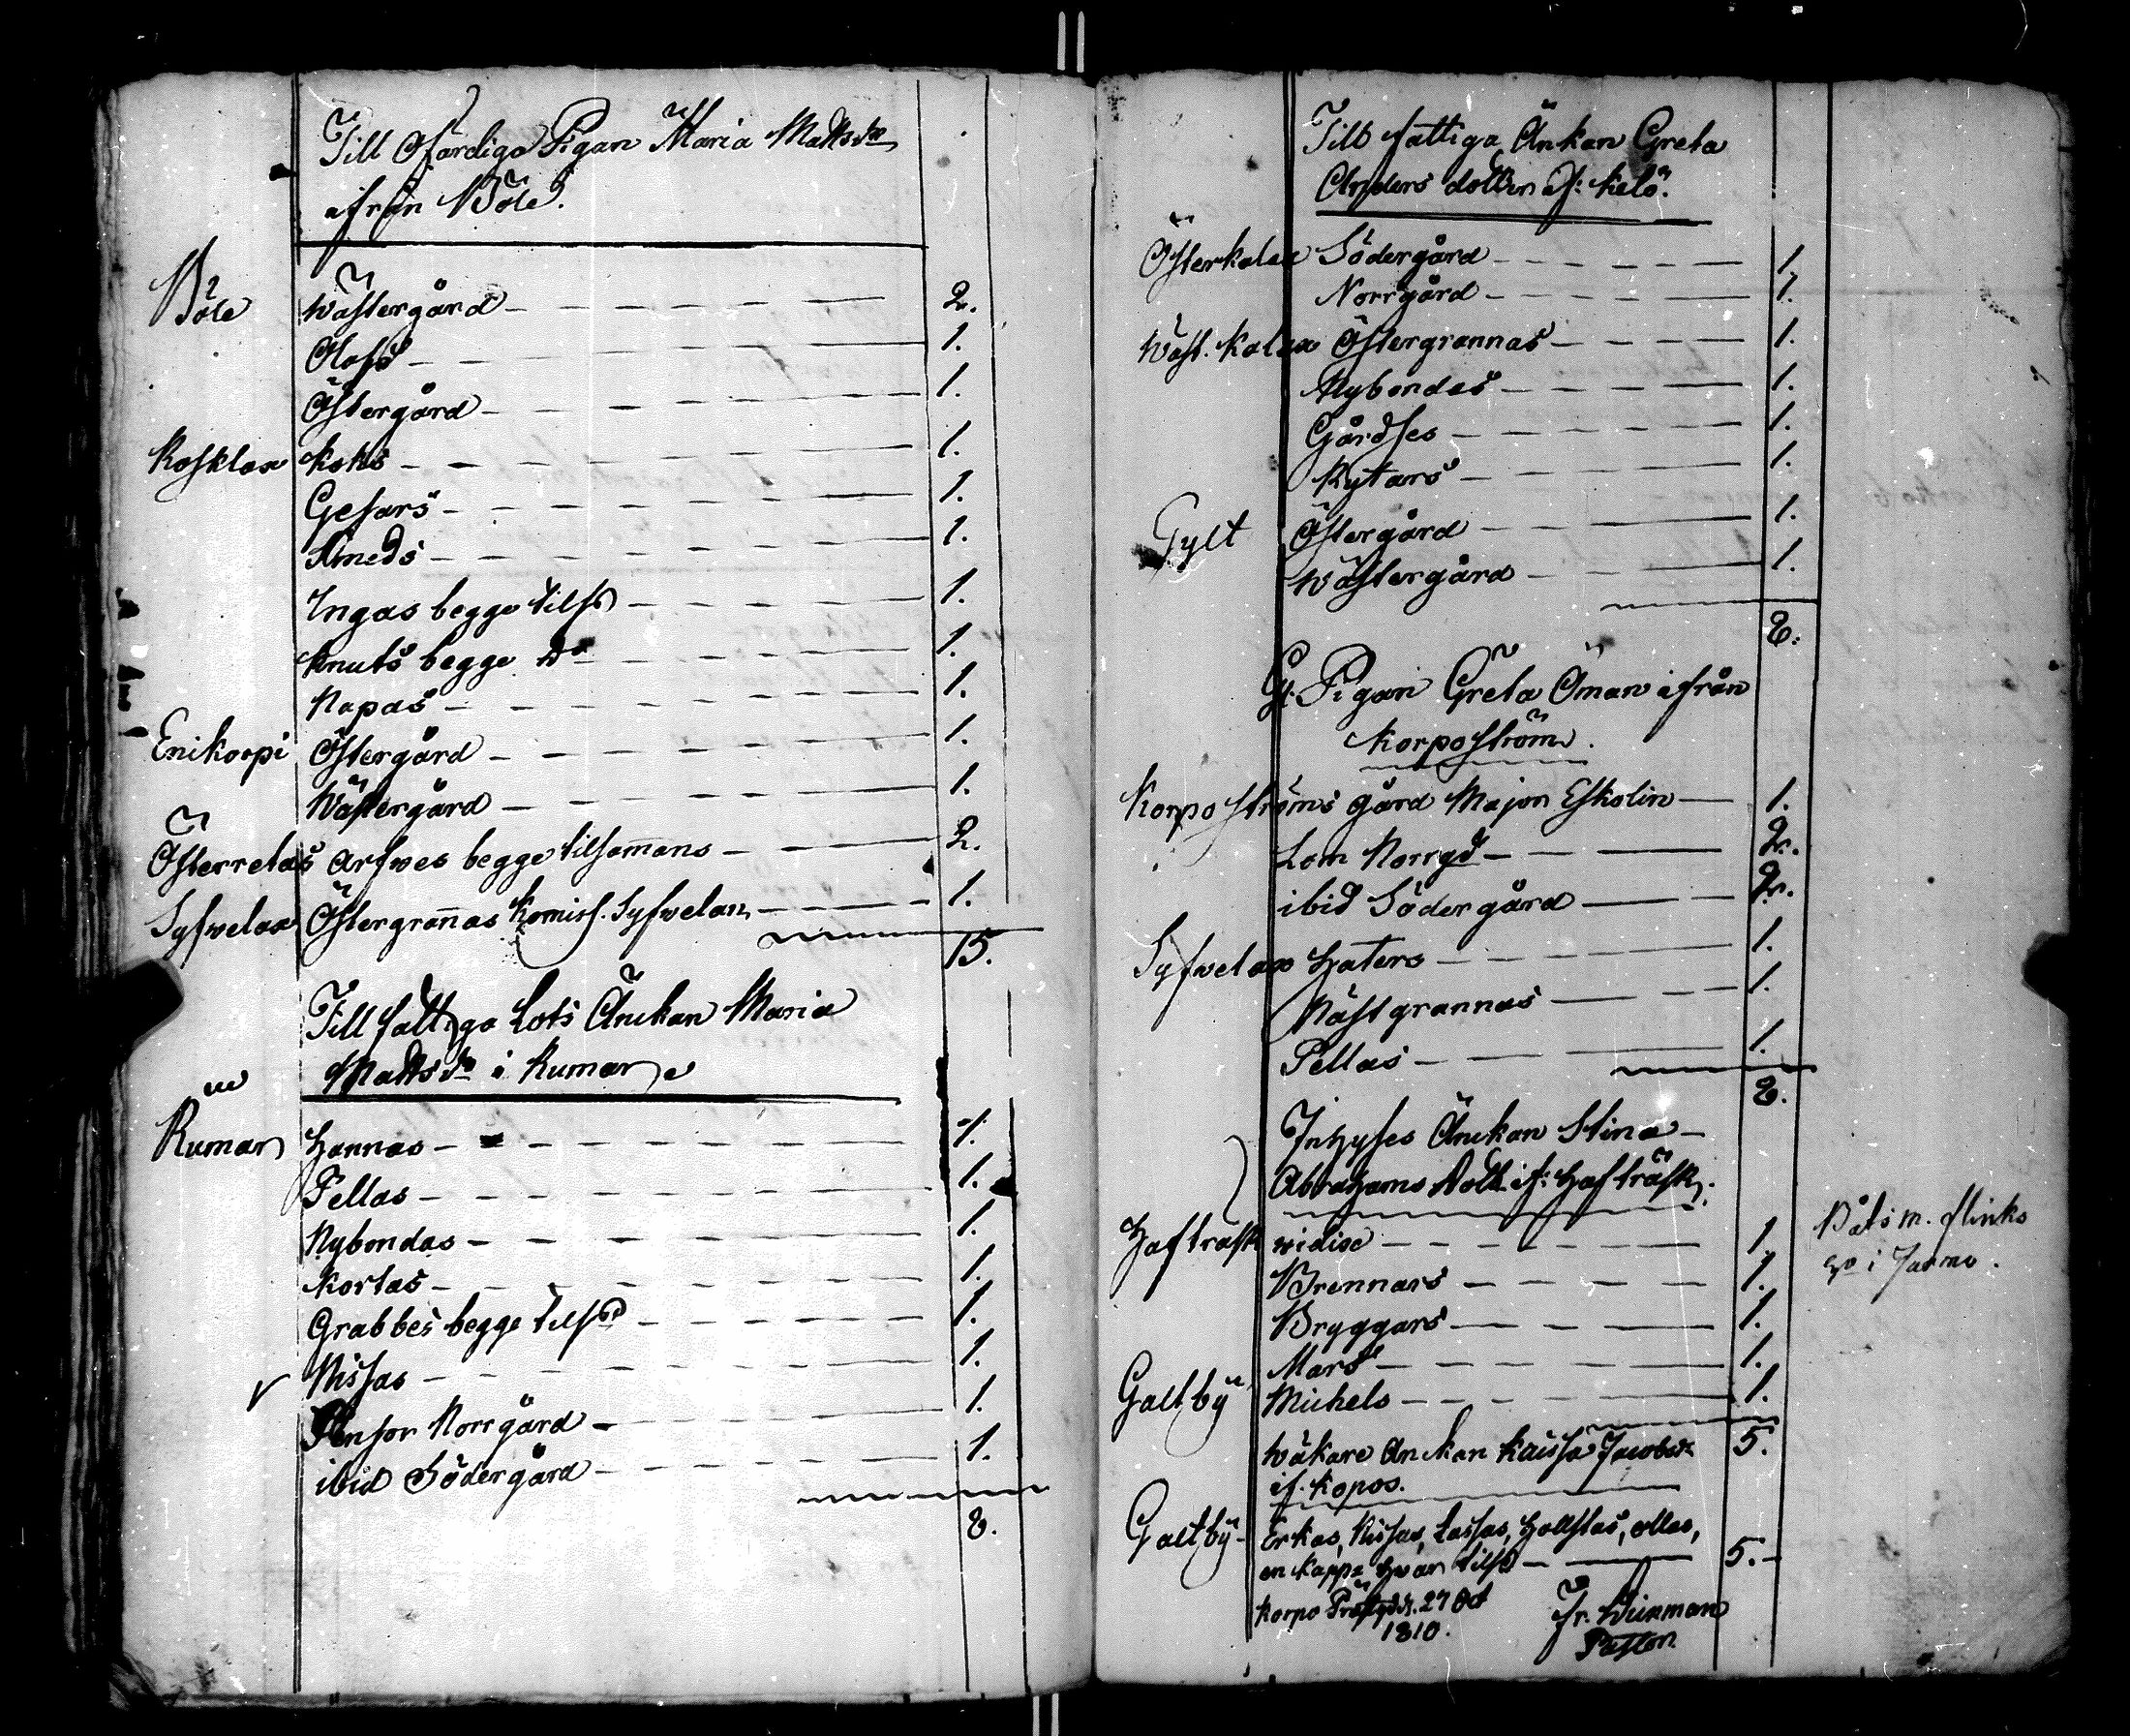 Till Ofärdiga Pigan Maria Mattsdr
ifrån Böle.
Böle Wästergård 2.
Olofs 1.
Östergård 1.
Rosklax Koks 1.
Gesars 1.
Smeds 1.
Ingas begge tilsd 1.
Knuts begge Do 1.
Napas 1.
Enikorpi Östergård 1.
Wästergård 1.
Österretais Arfwes begge tilsamans 2.
Syfwelax Östergranas Komiss. Syfwelan 1.
15.
Till fattiga Lots Änckan Maria
Mattsdr i Rumar
Rumar Hannas 1.
Pellas 1.
Nybondas 1.
Kortas 1.
Grabbes begge tilsd 1.
Nissas 1.
Norrgård 1.
ibid Södergård 1.
8.
Till fattiga Änkan Greta
Anders dotter if: Kelö.
Österkalax Södergård 1.
Norrgård 1.
Wäst. Kalax Östergrannas 1.
Nybondes 1.
Gårdses 1.
Rytars 1.
Gylt Östergård 1.
Wästergård 1.
8.
Gl. Pigan Greta Öman ifrån
Korpoström.
Korpo ströms gård Major Eskolin 1.
Lom Norrgd 2.
ibid Södergård 2.
Syfwelax Haters 1.
Näst grannas 1.
Pellas 1.
8.
Inhyses Änckan Stina
Abrahams Dott. if: Hafträsk.
Hafträsk widise 1.
Brennars 1.
Bryggars 1.
Båtsm. flinks
i Jarmo.
Mars 1.
Galtby Michels 1.
5.
Wäkare Anckan Kaissa Jacobsdr
if. Kopos.
Galtby Erkas, Nissas, Lassas, Hollstas, ollas,
en kappe hwar tilsd 5.
Korpo Prästgd d. 27 Oct
1810.
Fr. Winman
Pastor